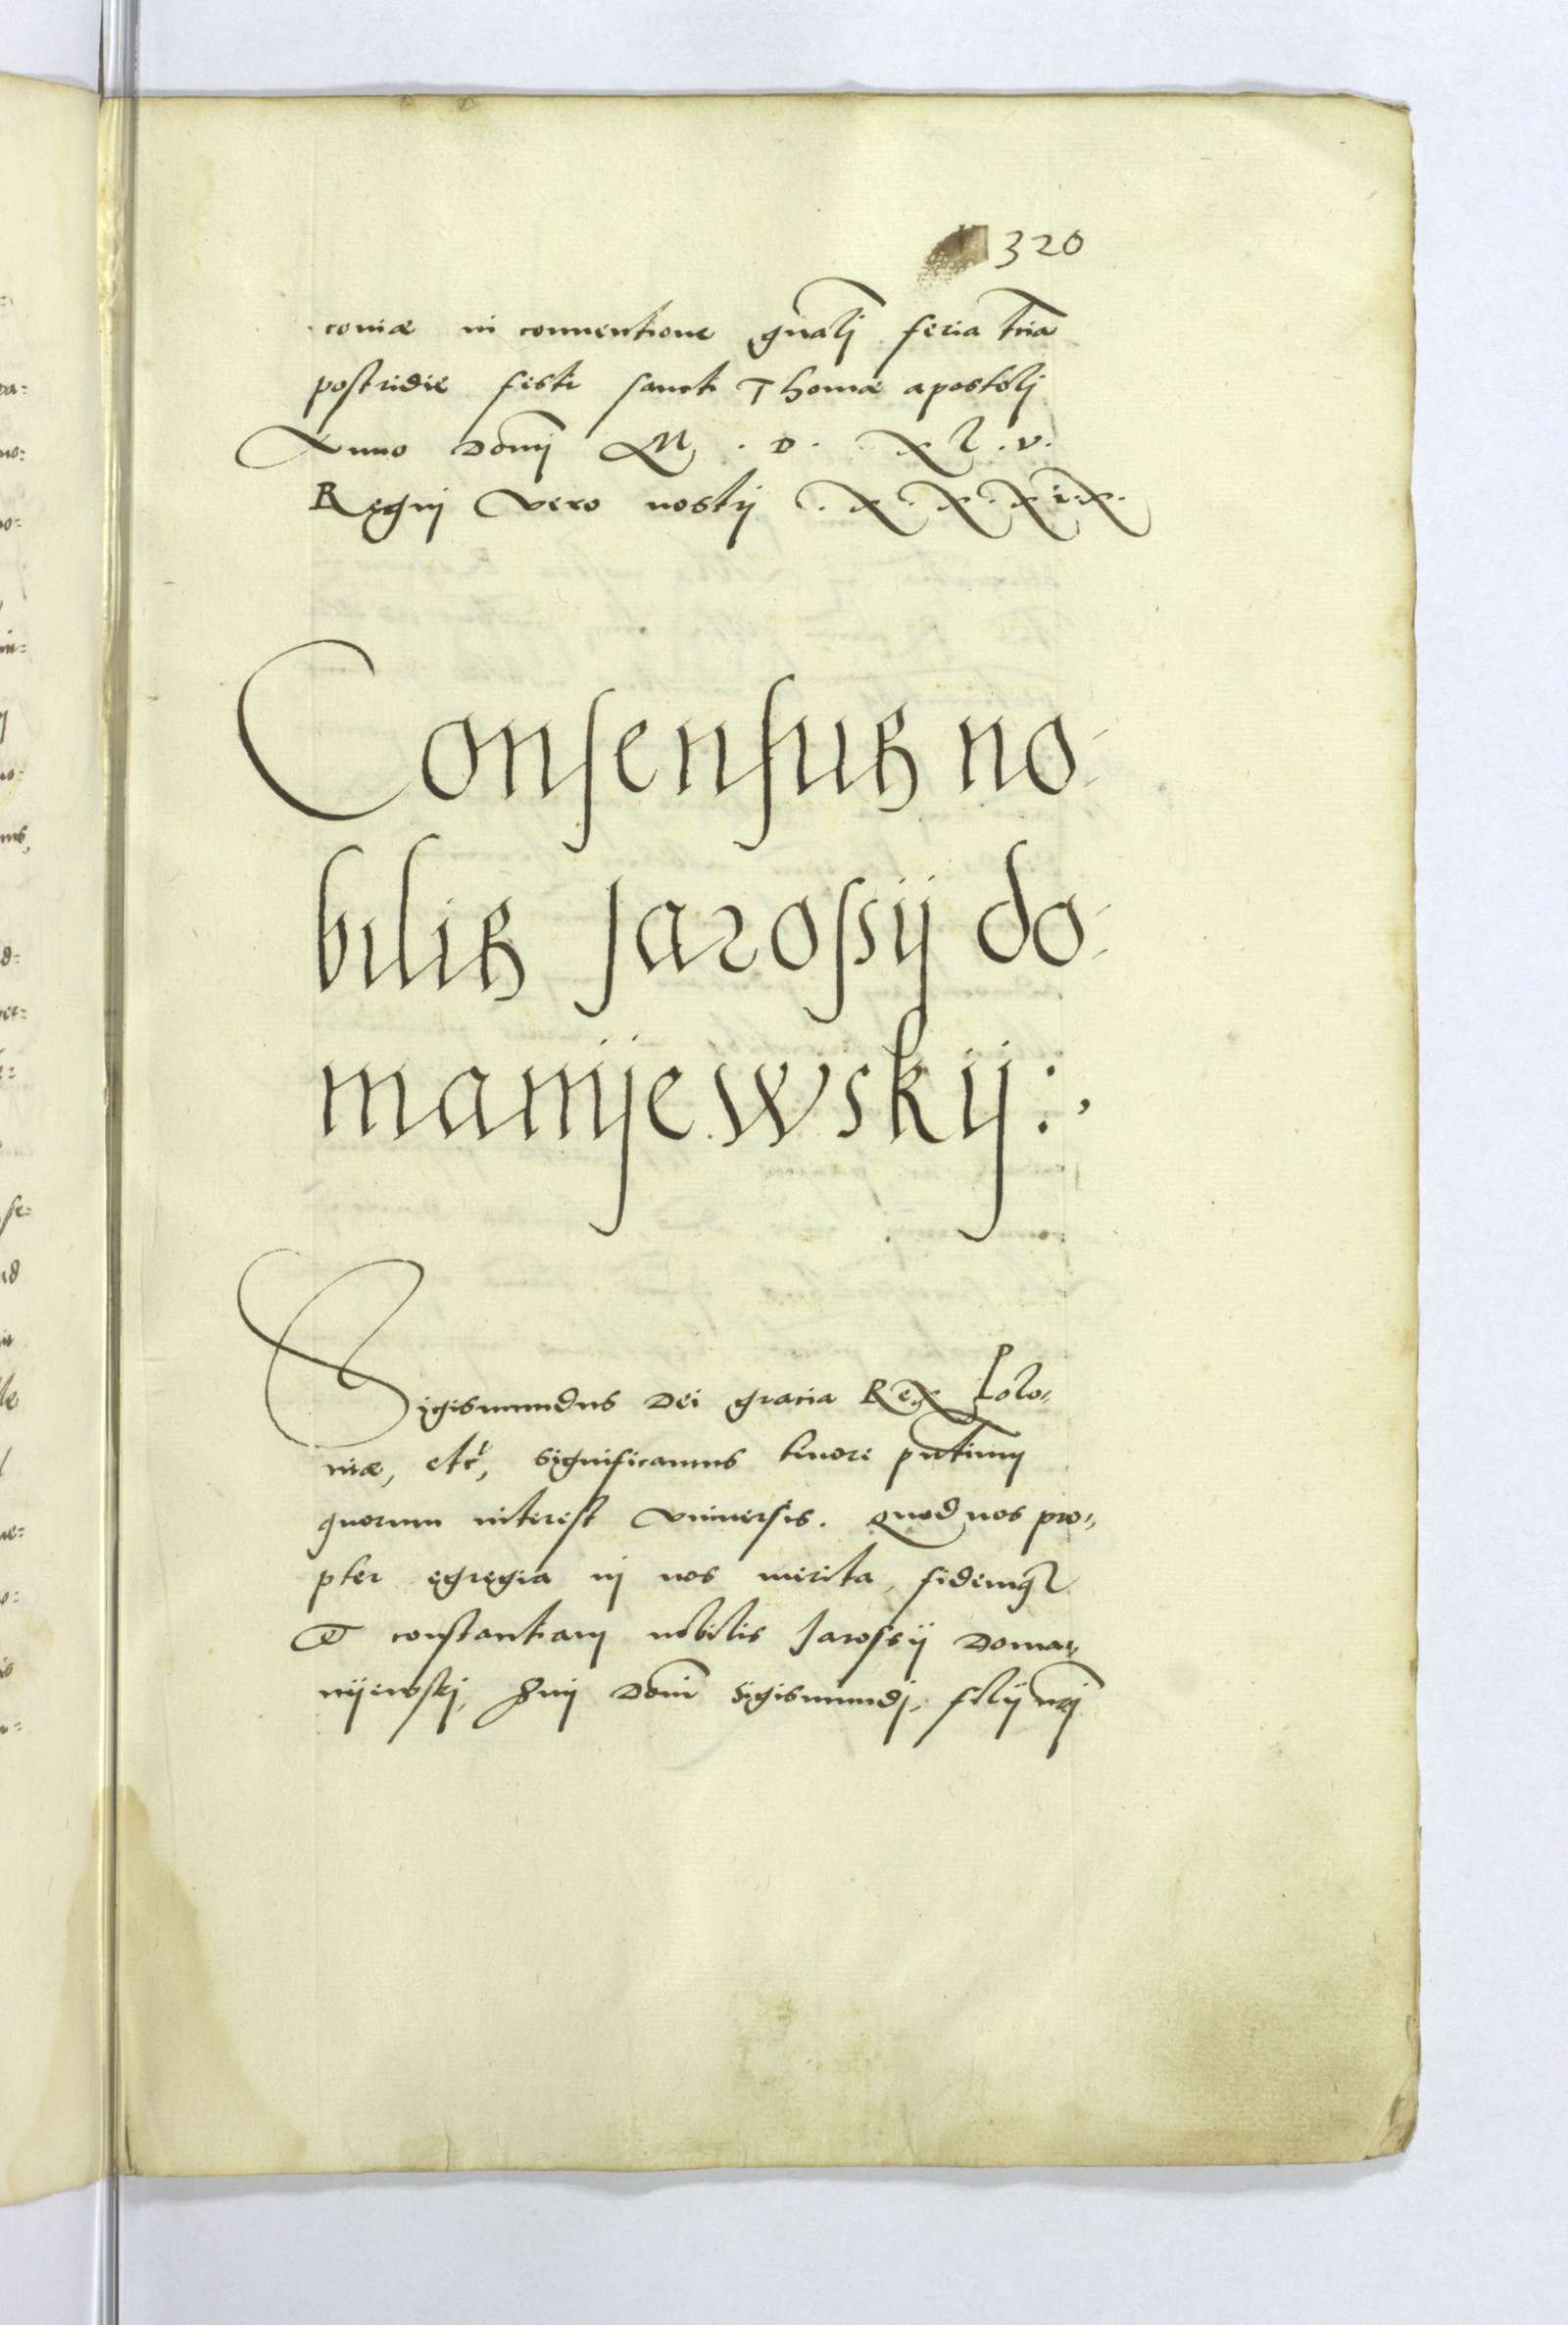 320
coniæ in conuentione gnalj feria tria
postridie festi sancti Thomæ apostolj
Anno Domj M . D . X L . V .
Regnj Vero nostrj . X . X . X i . X .
Consensus no-
bilis Jarossij do-
manijewskij :,
Sigismundus Dei gracia Rex Polo-
niæ, etc, significamus tenore pntium
quorum interest Vniuersis. Quod nos pro-
pter egregia in nos merita, fidemq
Et constantiam nobilis Jarossij Doma-
nijewskj, Domi Sigismundj, filij nrj